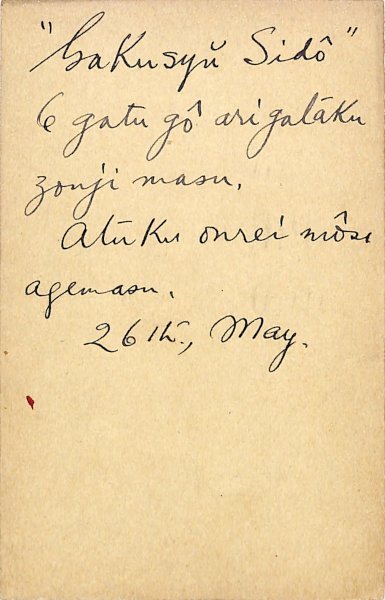 "Gakusyū Sidô"
6 gatu gô arigatáku
zonji masu.
Atuku onrei môsi
agemasu.
26th., May.